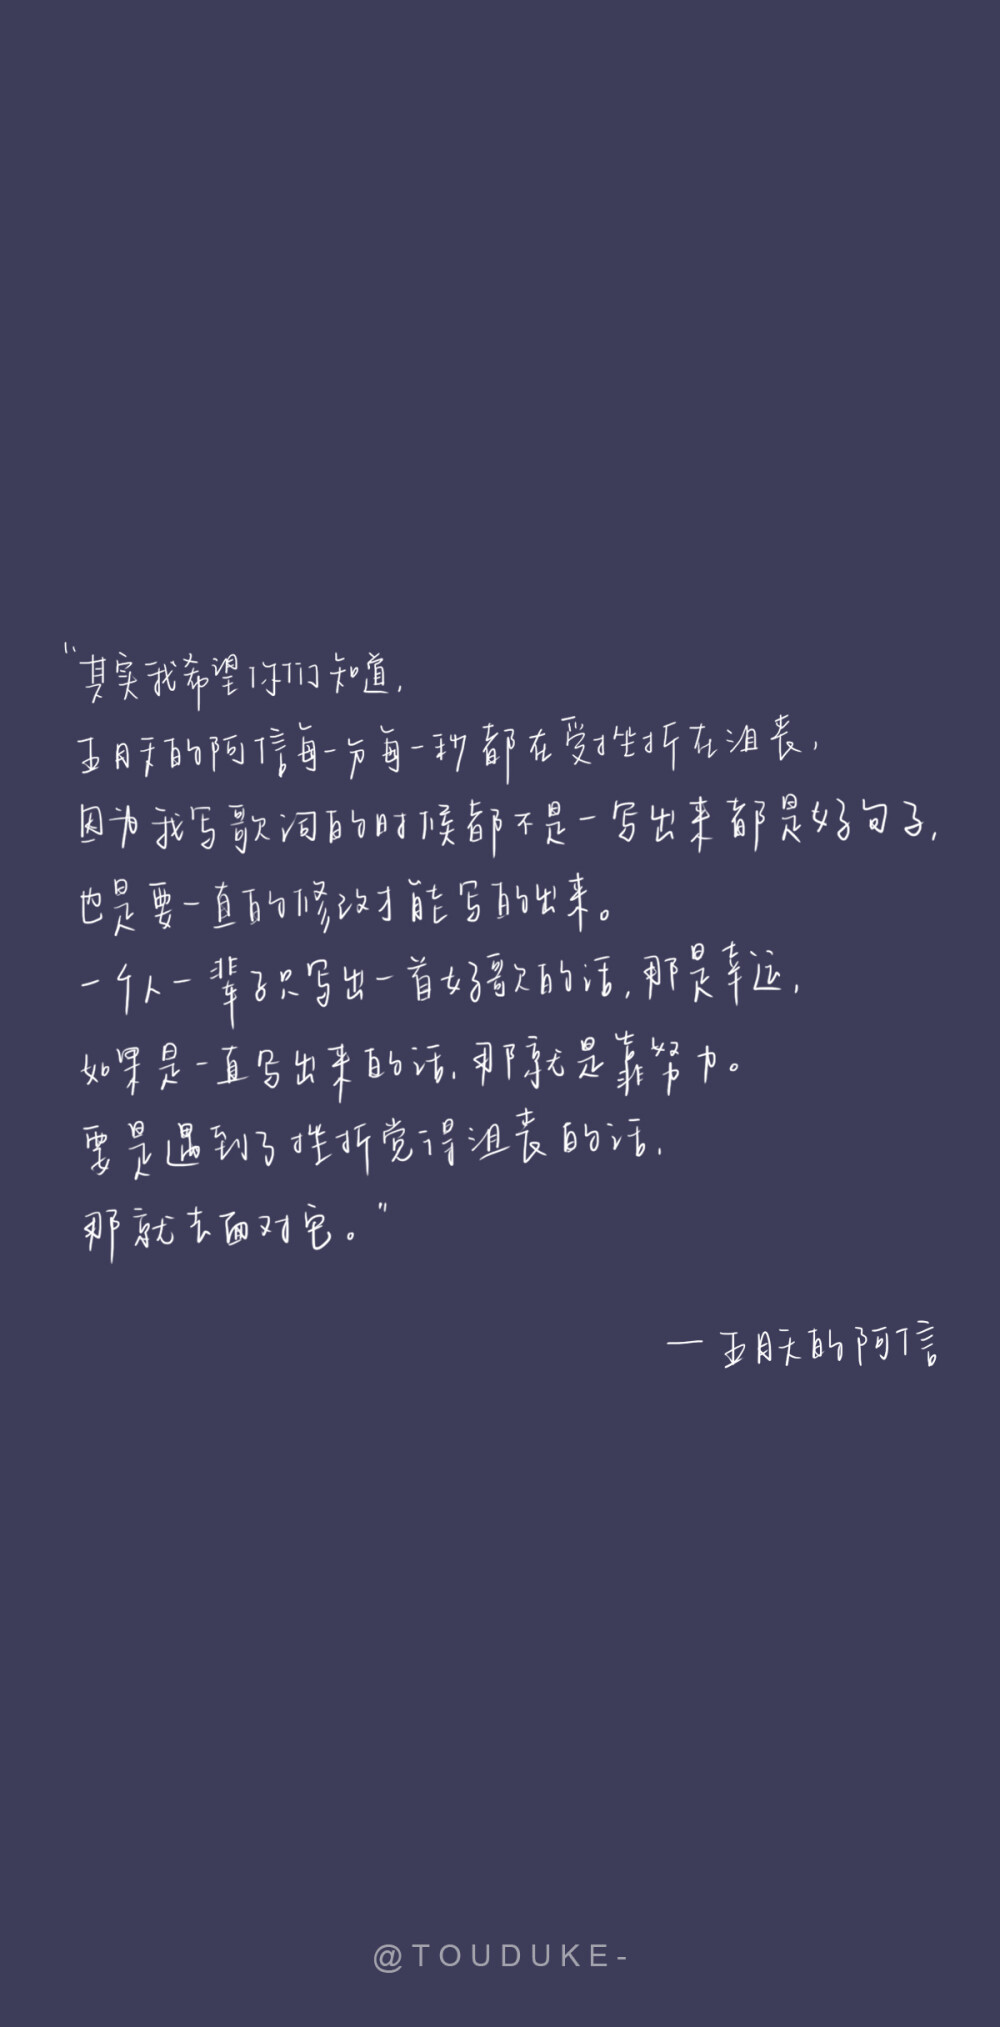 “其实我希望你们知道，
五月天的阿信每一分每一秒都在受挫折在沮丧，
因为我写歌词的时候都不是一写出来都是好句子，
也是要一直的修改才能写的出来。
一个人一辈子只写出一首好歌的话，那是幸运，
如果是一直写出来的话，那就是靠努力。
要是遇到了挫折觉得沮丧的话，
那就去面对它。”
— 五月天的阿信
@TOUDUKE-